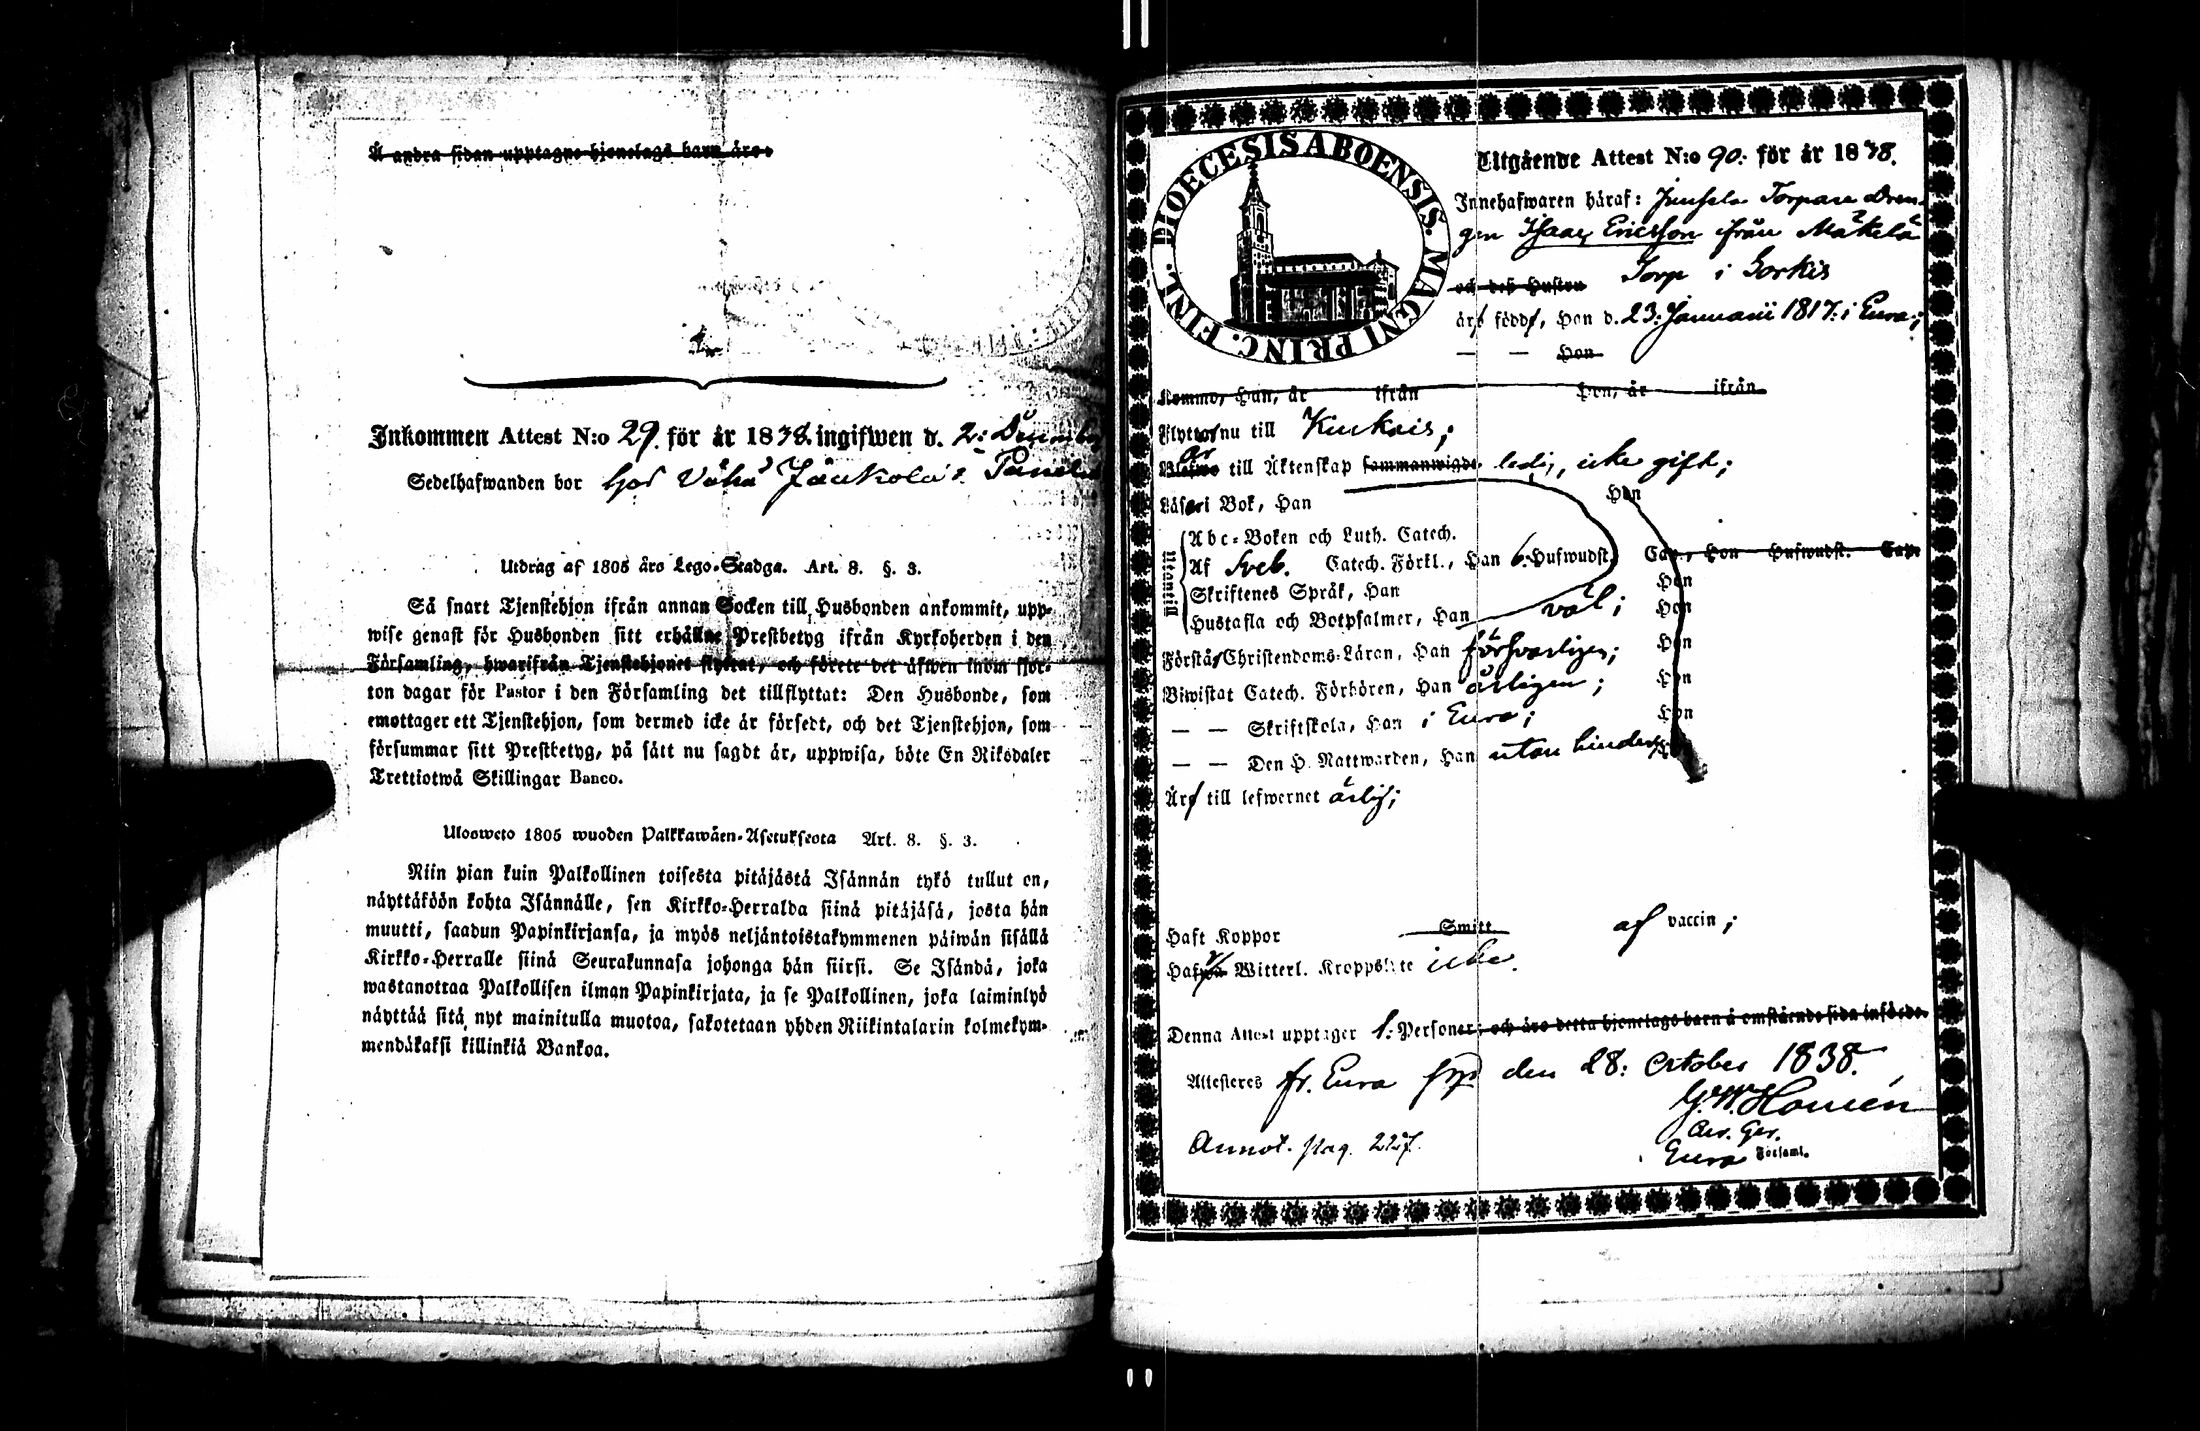 Å andra sidan upptagne hjonelags barn äro:
Inkommen Attest N:o 29. för år 1838. ingifwen d. 2: December
Sedelhafwanden bor hos Vähä Jaakola i Panelia
Utdrag af 1805 års Lego-Stadga. Art. 8. §. 3.
Så snart Tjenstehjon ifrån annan Socken till Husbonden ankommit, upp-
wise genast för Husbonden sitt erhållne Prestbetyg ifrån Kyrkoherden i den
Församling, hwarifrån Tjenstehjonet flyttat, och förete det äfwen inom fjor-
ton dagar för Pastor i den Församling det tillflyttat: Den Husbonde, som
emottager ett Tjenstehjon, som dermed icke är försedt, och det Tjenstehjon, som
försummar sitt Prestbetyg, på sätt nu sagdt är, uppwisa, böte En Riksdaler
Trettiotwå Skillingar Banco.
Ulosweto 1805 wuoden Palkkawäen-Asetuksesta Art. 8. §. 3.
Niin pian kuin Palkollinen toisesta pitäjästä Isännän tykö tullut on,
näyttäköön kohta Isännälle, sen Kirkko-Herralda siinä pitäjäsä, josta hän
muutti, saadun Papinkirjansa, ja myös neljäntoistakymmenen päiwän sisällä
Kirkko-Herralle siinä Seurakunnasa johonga hän siirsi. Se Isändä, joka
wastanottaa Palkollisen ilman Papinkirjata, ja se Palkollinen, joka laiminlyö
näyttää sitä nyt mainitulla muotoa, sakotetaan yhden Riikintalarin kolmekym-
mendäkaksi killinkiä Bankoa.
DIOECESIS ABOENSIS. MAGNI PRINC. FINL.
Utgående Attest N:o 90. för år 1838.
Innehafwaren häraf: Torpare Dren-
gen Isaac Ericsson ifrån Mäkelä
och deß Hustru Torp i Sorkis
äro födde, Han d. 23: Januarii 1817: i Eura;
— — Hon
Kommo, Han, år ifrån Hon, år ifrån
Flyttar nu till Kiukais;
Blefwo är till Äktenskap sammanwigde ledig, icke gift;
Läser i Bok, Han Hon
Utantill
Abc-Boken och Luth. Catech.
Af Sveb. Catech. Förkl., Han 6. Hufwudst. Cap., Hon Hufwudst. Cap.
Skriftenes Språk, Han Hon
Hustafla och Botpsalmer, Han väl; Hon
Förstår Christendoms-Läran, Han försvarligen; Hon
Biwistat Catech. Förhören, Han ärligen; Hon
— — Skriftskola, Han i Eura; Hon
— — Den H. Nattwarden, Han utan hinder;
Äro till lefwernet ärlig;
Haft Koppor Smitt af vaccin;
Hafwa Witterl. Kroppslyte icke.
Denna Attest upptager 1. Personer; och äro detta hjonelags barn å omstående sida införde.
Attesteres fr. Eura den 28: October 1838.
G. W. Homén
Eura Församl.
Annot. pag. 227.